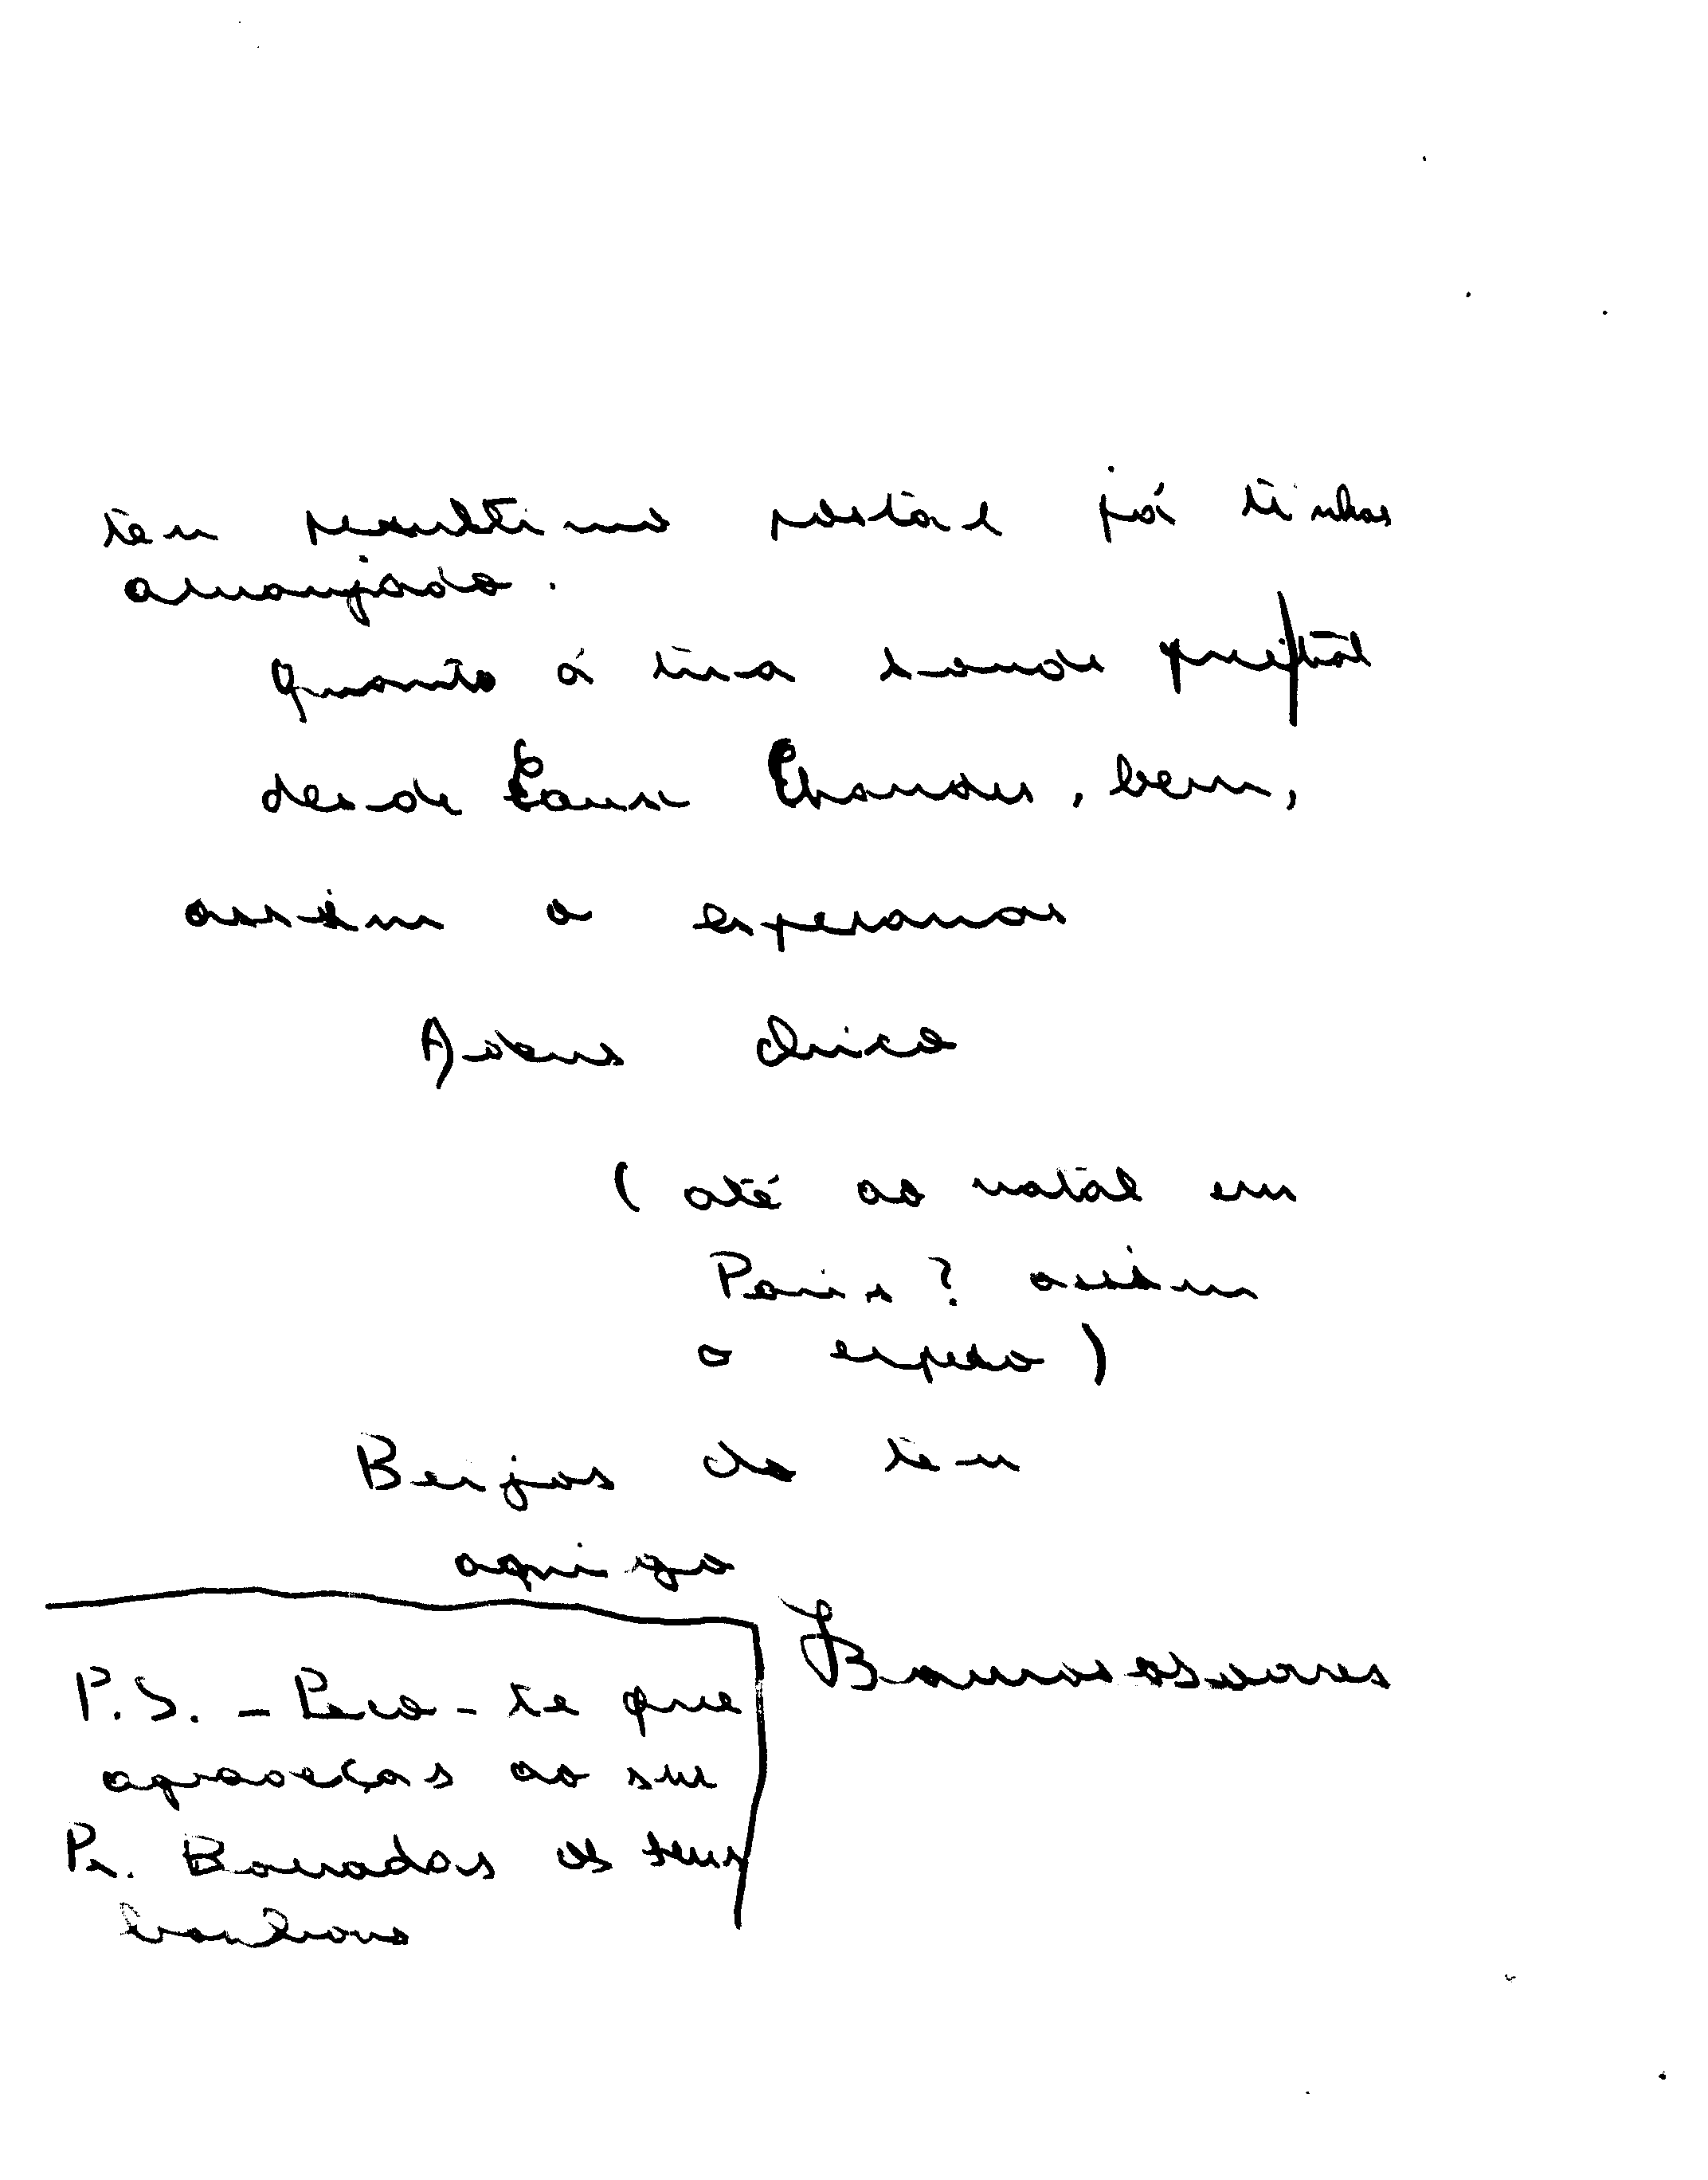 teu penultimo postal já tinhas
arranjado.
Quanto à tua
desde bem,
assim o esperamos
Adeus Chico
( até ao natal em
Paris? assim
o espero )
Beijos do teu
amigo
P.S. - Peço-te que
agradeças ao sr
Pr. Barradas os seus